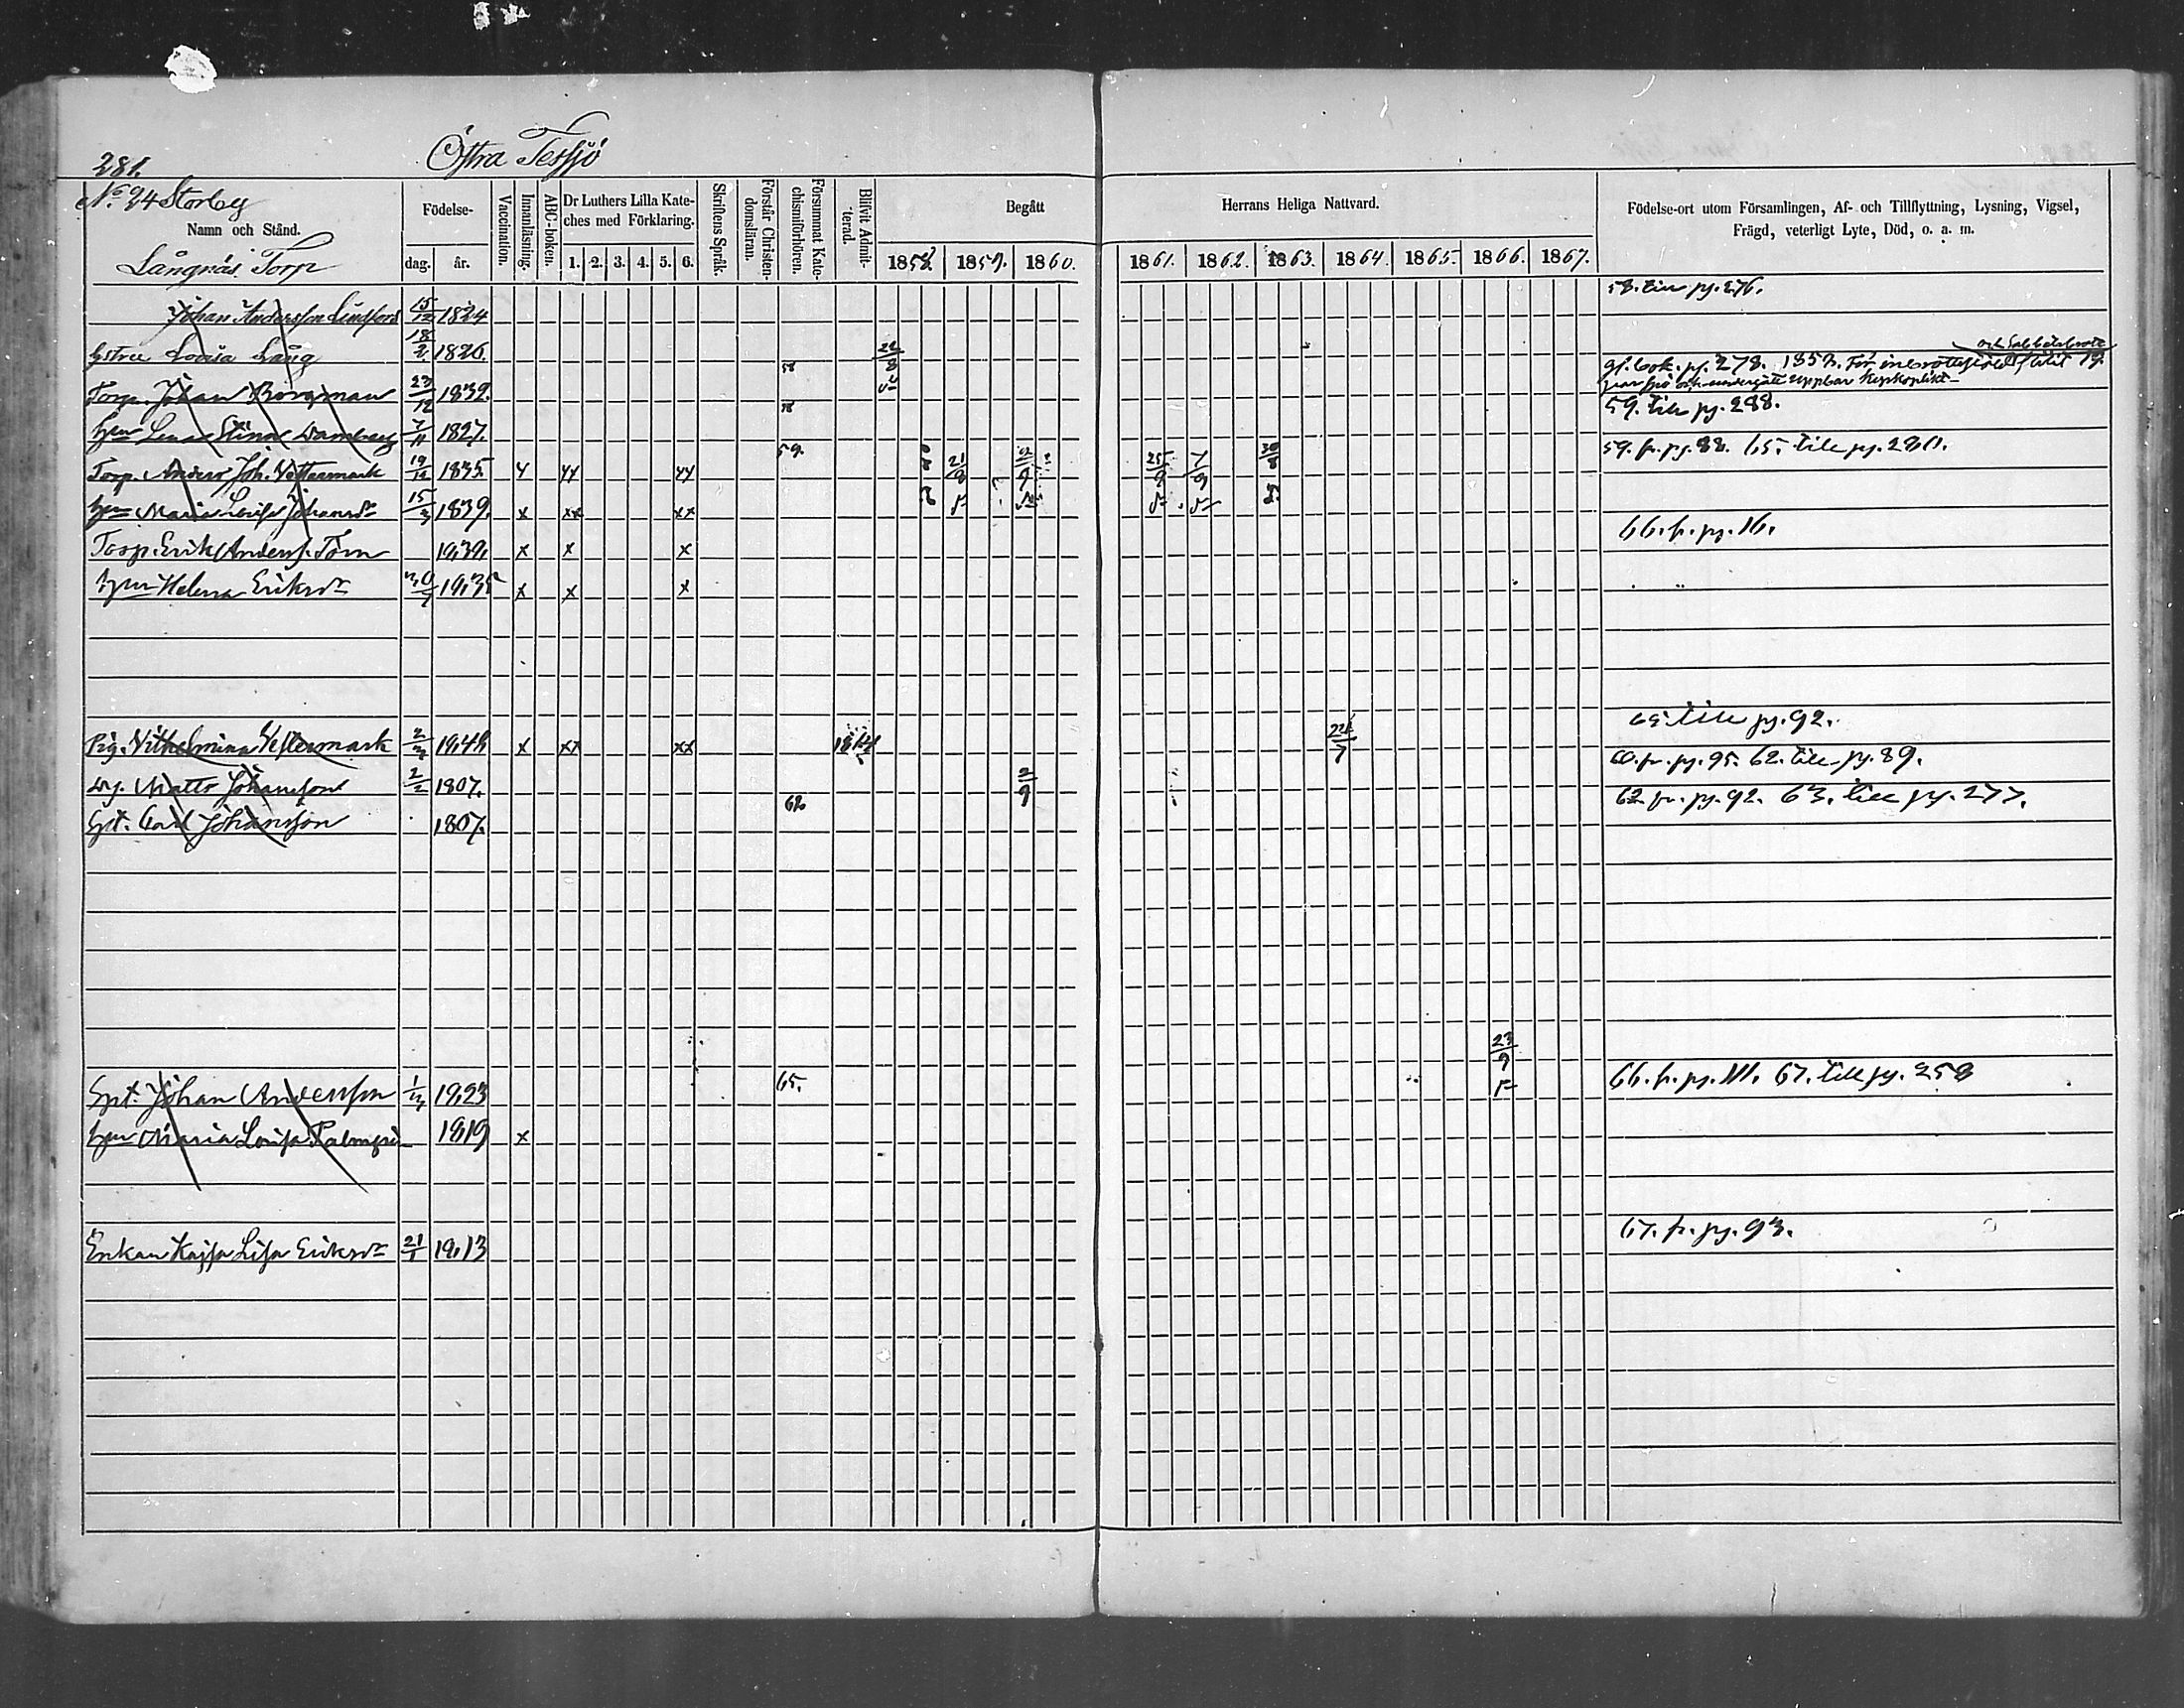 281.
Östra Tessjö
No 94 Storby
Namn och Stånd.
Långnäs Torp
Födelse-
dag. år.
Vaccination.
Innanläsning.
ABC-boken.
Dr Luthers Lilla Kate-
ches med Förklaring.
1. 2. 3. 4. 5. 6.
Skriftens Språk.
Förstår Christen-
domsläran.
Försummat Kate-
chismiförhören.
Blifvit Admit-
terad.
Begått
1858. 1859. 1860.
Herrans Heliga Nattvard.
1861. 1862. 1863. 1864. 1865. 1866. 1867.
Födelse-ort utom Församlingen, Af- och Tillflyttning, Lysning, Vigsel,
Frägd, veterligt Lyte, Död, o. a. m.
Johan Andersson Lindfors 15/12 1824 58. till pg. 276.
hstru Lovisa Lång 18/2 1826. 22/8
och Sabbatsbrott
Torp. Johan Borgman 23/12 1832. 58 gl. bok. pg. 278. 1857. För inbrottsstöld
par spö och undergått uppbar Kyrkoplikt
hun Lena Stina 7/11 1827. 58 59. till pg. 288.
Torp. Anders Joh. Vestermark 19/12 1835 x xx xx 59. 21/8 25/9 7/9 30/8 59. fr. pg. 88. 65. till pg. 280.
hun Maria Lovisa Johansdr 15/3 1839. x xx xx
Torp. Erik Anderss. Törn 1839. x x x 66. fr. pg. 16.
hun Helena Eriksdr 1835 x x x
Pig. Vilhelmina Vestermark 1848 x xx xx 1864 24/7 65 till pg. 92.
Dr. Matts Johansson 2/2 1807. 2/9 60. fr. pg. 95. 62. till pg. 89.
Spt. Carl Johansson 1807. 62 62 fr. pg. 92. 63. till pg. 277.
Spt. Johan Andersson 1823 65. 23/9 66. fr. pg. 111. 67. till pg. 258
hun Maria Lovisa 1819 x
Enkan Kajsa Lisa Eriksdr 21/1 1813 67. fr. pg. 93.